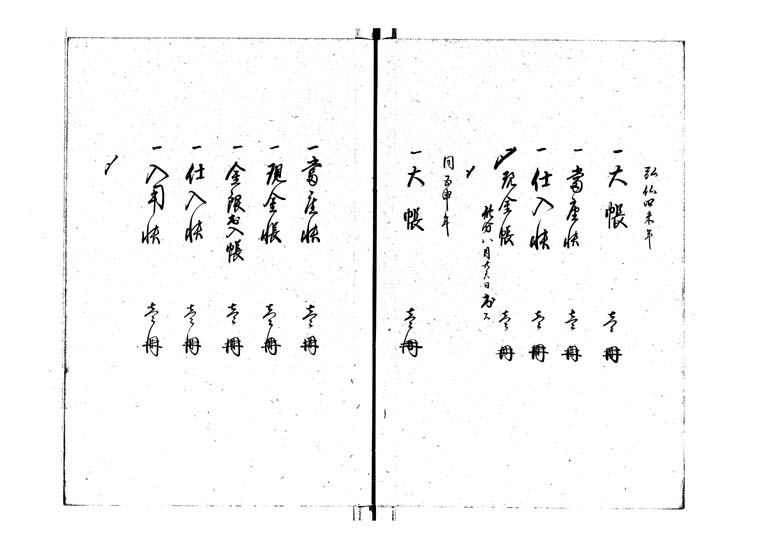 弘化四未年
一大帳 壱冊
一當座帳 壱冊
一仕入帳 壱冊
一現金帳 壱冊
八月廿六日
同五申年
一大帳 壱冊
一當座帳 壱冊
一現金帳 壱冊
一金銀出入帳 壱冊
一仕入帳 壱冊
一入用帳 壱冊